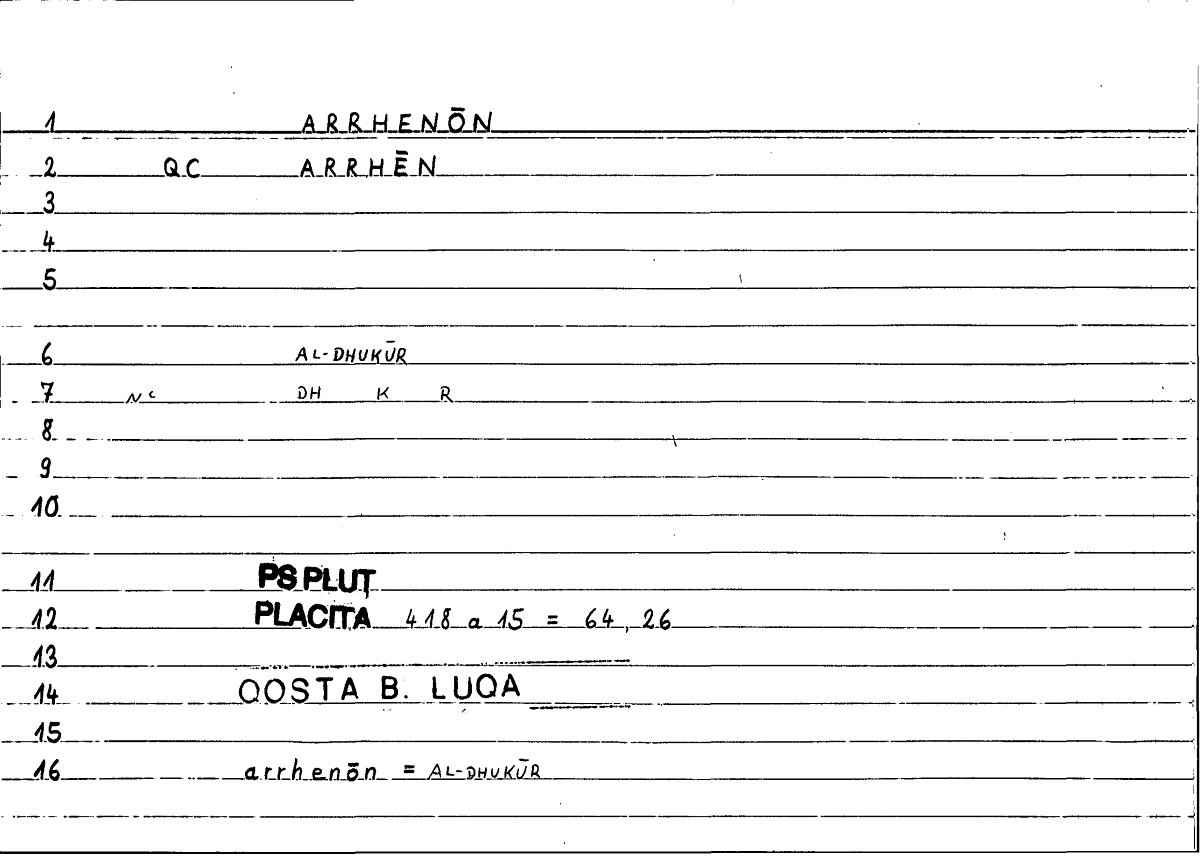 1 ARRHENŌN
2 QC ARRHĒN
3
4
5
6 AL-DHUKŪR
7 NC DH K R
8
9
10
11 PS PLUT
12 PLACITA 418 a 15 = 64, 26
13
14 QOSTA B. LUQA
15
16 arrhenōn = AL-DHUKŪR